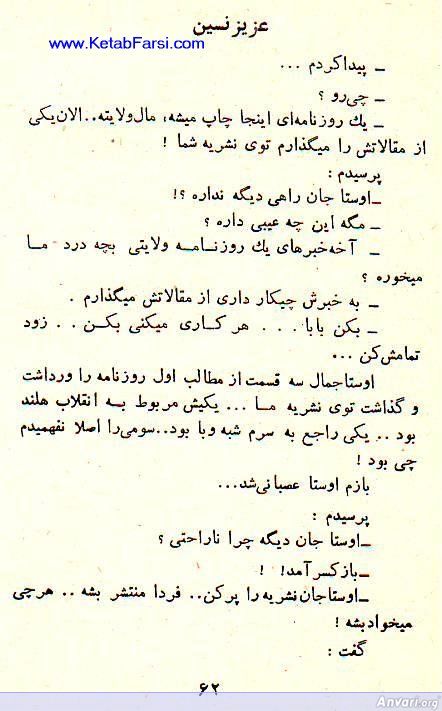 عزیز نسین
www.KetabFarsi.com
ـ پیدا کردم ...
ـ چی‌رو ؟
ـ یك روزنامه‌ای اینجا چاپ میشه، مال‌ولایته.. الان‌یکی
از مقالاتش را میگذارم توی نشریه شما !
پرسیدم :
ـ اوستا جان راهی دیگه نداره ؟!
ـ مگه این چه عیبی داره ؟
ـ آخه‌خبرهای یك روزنامـه ولایتی بچه درد مـا
میخوره ؟
ـ به خبرش چیکار داری از مقالاتش میگذارم .
ـ بکن بابا . . . هر کـاری میکنی بکـن . . زود
تمامش‌کن ...
اوستاجمال سه قسمت از مطالب اول روزنامه را ورداشت
و گذاشت توی نشریه مـا ... یکیش مربوط بـه انقلاب هلند
بود .. یکی راجع به سرم شبه وبا بود..سومی‌را اصلا نفهمیدم
چی بود !
بازم اوستا عصبانی‌شد...
پرسیدم :
ـ اوستا جان دیگه چرا ناراحتی ؟
ـ بازکسرآمد! !
ـ اوستاجان‌نشریه را پرکن.. فردا منتشر بشه .. هرچی
میخوادبشه !
گفت :
۶۲
Anvari.org